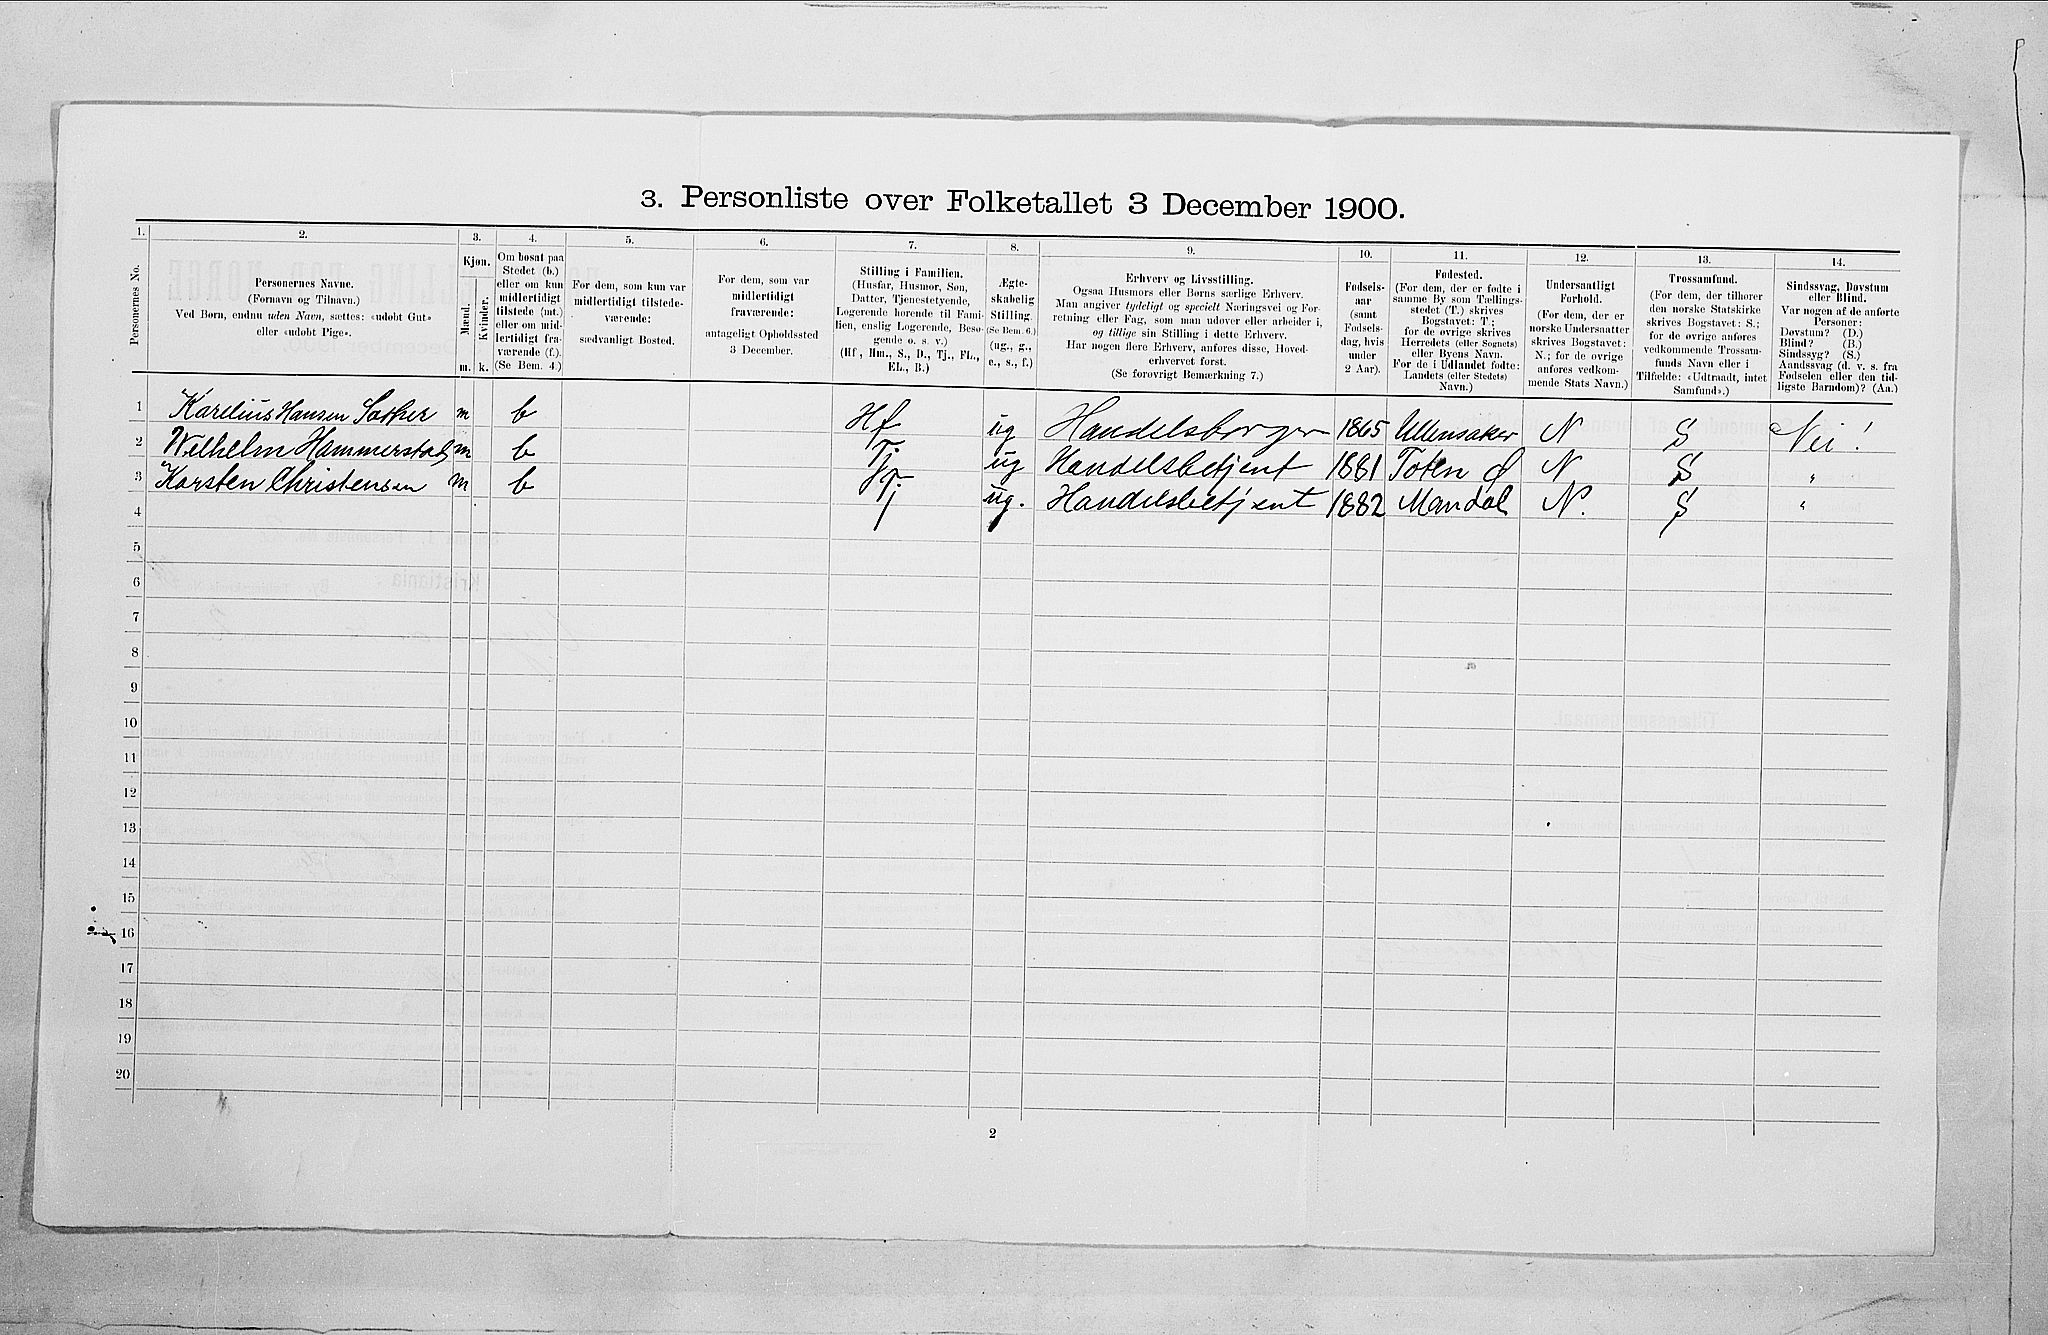 3. Personliste over Folketallet 3 December 1900.
1. 2. 3. 4. 5. 6. 7. 8. 9. 10. 11. 12. 13. 14.
Personernes No.
Personernes Navne.
(Fornavn og Tilnavn.)
Ved Børn, endnu uden Navn, sættes: «udøbt Gut»
eller «udøbt Pige».
Kjøn.
Mænd.
Kvinder.
m. k.
Om bosat paa
Stedet (b.)
eller om kun
midlertidigt
tilstede (mt.)
eller om mid-
lertidigt fra-
værende (f.).
(Se Bem. 4.)
For dem, som kun var
midlertidigt tilstede-
værende:
sædvanligt Bosted.
For dem, som var
midlertidigt
fraværende:
antageligt Opholdssted
3 December.
Stilling i Familien.
(Husfar, Husmor, Søn,
Datter, Tjenestetyende,
Logerende hørende til Fami-
lien, enslig Logerende, Besø-
gende o. s. v.)
(Hf., Hm., S., D., Tj., FL.,
EL., B.)
Ægte-
skabelig
Stilling.
(Se Bem. 6.)
(ug., g.,
e., s., f.)
Erhverv og Livsstilling.
Ogsaa Husmors eller Børns særlige Erhverv.
Man angiver tydeligt og specielt Næringsvei og For-
retning eller Fag, som man udøver eller arbeider i,
og tillige sin Stilling i dette Erhverv.
Har nogen flere Erhverv, anføres disse, Hoved-
erhvervet først.
(Se forøvrigt Bemærkning 7.)
Fødsels-
aar
(samt
Fødsels-
dag, hvis
under
2 Aar).
Fødested.
(For dem, der er fødte i
samme By som Tællings-
stedet (T.) skrives
Bogstavet: T.;
for de øvrige skrives
Herredets (eller Sognets)
eller Byens Navn.
For de i Udlandet fødte:
Landets (eller Stedets)
Navn.)
Undersaatligt
Forhold.
(For dem, der er
norske Undersaatter
skrives Bogstavet:
N.; for de øvrige
anføres vedkom-
mende Stats Navn.)
Trossamfund.
(For dem, der tilhører
den norske Statskirke
skrives Bogstavet: S.;
for de øvrige anføres
vedkommende Trossam-
funds Navn eller i
Tilfælde: «Udtraadt, intet
Samfund».)
Sindssvag, Døvstum
eller Blind.
Var nogen af de anførte
Personer:
Døvstum? (D.)
Blind? (B.)
Sindssyg? (S.)
Aandssvag (d. v. s. fra
Fødselen eller den tid-
ligste Barndom)? (Aa.)
1 Karelius Hansen Sæther m b Hf ug Handelsborger 1865 Ullensaker N S Nei!
2 Wilhelm Hammerstad m b Tj ug Handelsbetjent 1881 Toten Ø N S "
3 Karsten Christensen m b Tj ug. Handelsbetjent 1882 Mandal N. S "
4
5
6
7
8
9
10
11
12
13
14
15
16
17
18
19
20
2